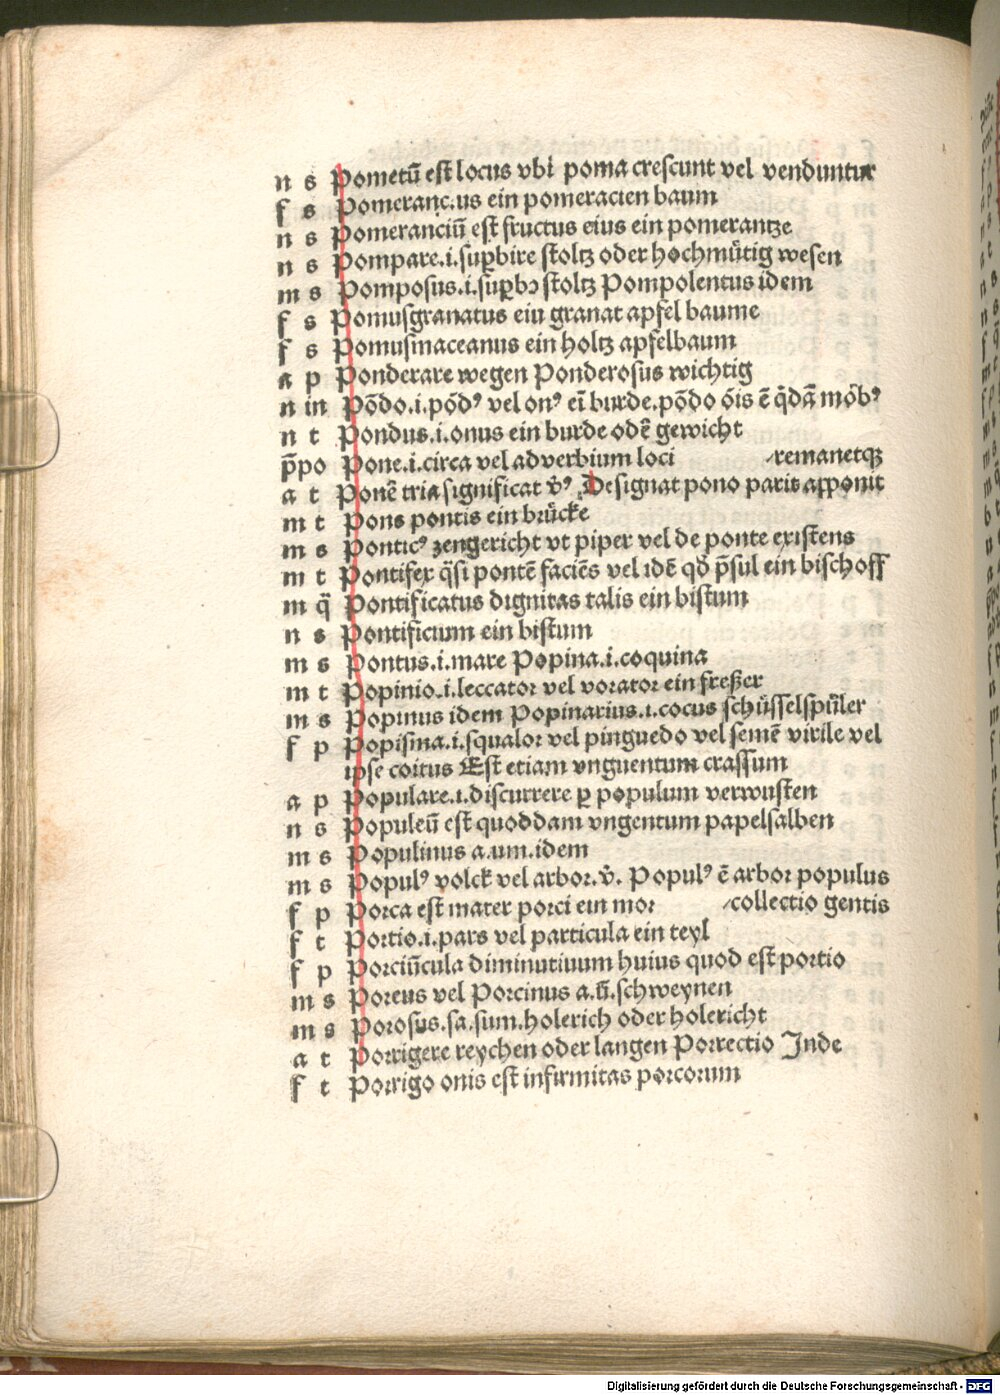 n s Pometū est locus vbi poma crescunt vel venduntur
f s Pomeranc.us ein pomeracien baum
n s Pomeranciū est fructus eius ein pomerantze
n s Pompare.i.suꝑbire stoltz oder hochmütig wesen
m s Pomposus.i.suꝑbꝰ stoltz Pompolentus idem
f s Pomusgranatus ein granat apfel baume
f s Pomusmaceanus ein holtz apfelbaum
a p Ponderare wegen Ponderosus wichtig
n in Pōdo.i.pōdꝰ vel onꝰ eī burde.pōdo ōis ē q̄dā mōbꝰ
n t Pondus.i.onus ein burde odē gewicht
p̄po Pone.i.circa vel adverbium loci ⸝remanetqꝫ
a t Ponē tria significat v̄ꝰ Designat pono paris apponit
m t Pons pontis ein brücke
m s Ponticꝰ zengericht vt piper vel de ponte existens
m t Pontifex q̄si pontē faciēs vel idē qđ p̄sul ein bischoff
m q̄ Pontificatus dignitas talis ein bistum
n s Pontificium ein bistum
m s Pontus.i.mare Popina.i.coquina
m t Popinio.i.leccator vel vorator ein freßer
m s Popinus idem Popinarius.i.cocus schüsselspüler
f p Popisma.i.squalor vel pinguedo vel semē virile vel
ipse coitus Est etiam vnguentum crassum
a p Populare.i.discurrere ꝑ populum verwusten
n s Populeū est quoddam vngentum papelsalben
m s Populinus a.um.idem
m s Populꝰ volck vel arbor.v̄. Populꝰ ē arbor populus
f p Porca est mater porci ein mor ⸝collectio gentis
f t Portio.i.pars vel particula ein teyl
f p Porciūcula diminutiuum huius quod est portio
m s Poreus vel Porcinus a.ū.schweynen
m s Porosus.sa.sum.holerich oder holericht
a t Porrigere reychen oder langen Porrectio Inde
f t Porrigo onis est infirmitas porcorum
Digitalisierung gefördert durch die Deutsche Forschungsgemeinschaft - DFG